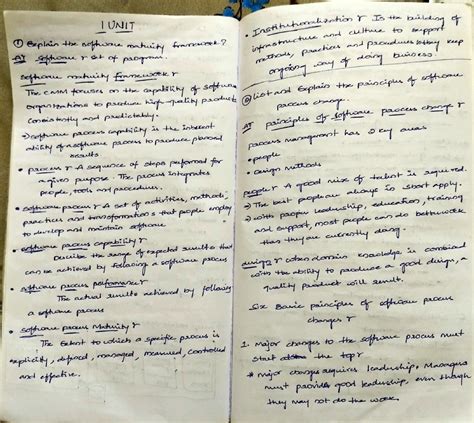 1 UNIT
① Explain the software maturity framework?
A) Software : set of programs.
Software maturity framework :
The CMM focuses on the capability of software
organizations to produce high-quality products
consistently and predictably.
→ software process capability is the inherent
ability of a software process to produce planned
results
• process : A sequence of steps performed for
a given purpose. The process integrates
people, tools and procedures.
• software process : A set of activities, methods,
practices and transformations that people employ
to develop and maintain software
• software process capability :
Describe the range of expected results that
can be achieved by following a software process
• software process performance :
The actual results achieved by following
a software process
• software process Maturity :
The extent to which a specific process is
explicitly, defined, managed, measured, controlled
and effective.
• Institutionalization : Is the building of
infrastructure and culture to support
methods, practices and procedures they keep
ongoing way of doing business.
② List and Explain the principles of software
process change.
A) principles of software process change :
process management has 2 key areas
• people
• design methods
people : A good mix of talent is required.
→ The best people are always in short supply.
→ with proper leadership, education, training
and support, most people can do better work
than they are currently doing.
design : when domain knowledge is combined
with the ability to produce a good design, a
quality product will result.
Six Basic principles of software process
changes :
1. Major changes to the software process must
start at the top :
* Major changes requires leadership. Managers
must provide good leadership, even though
they may not do the work.